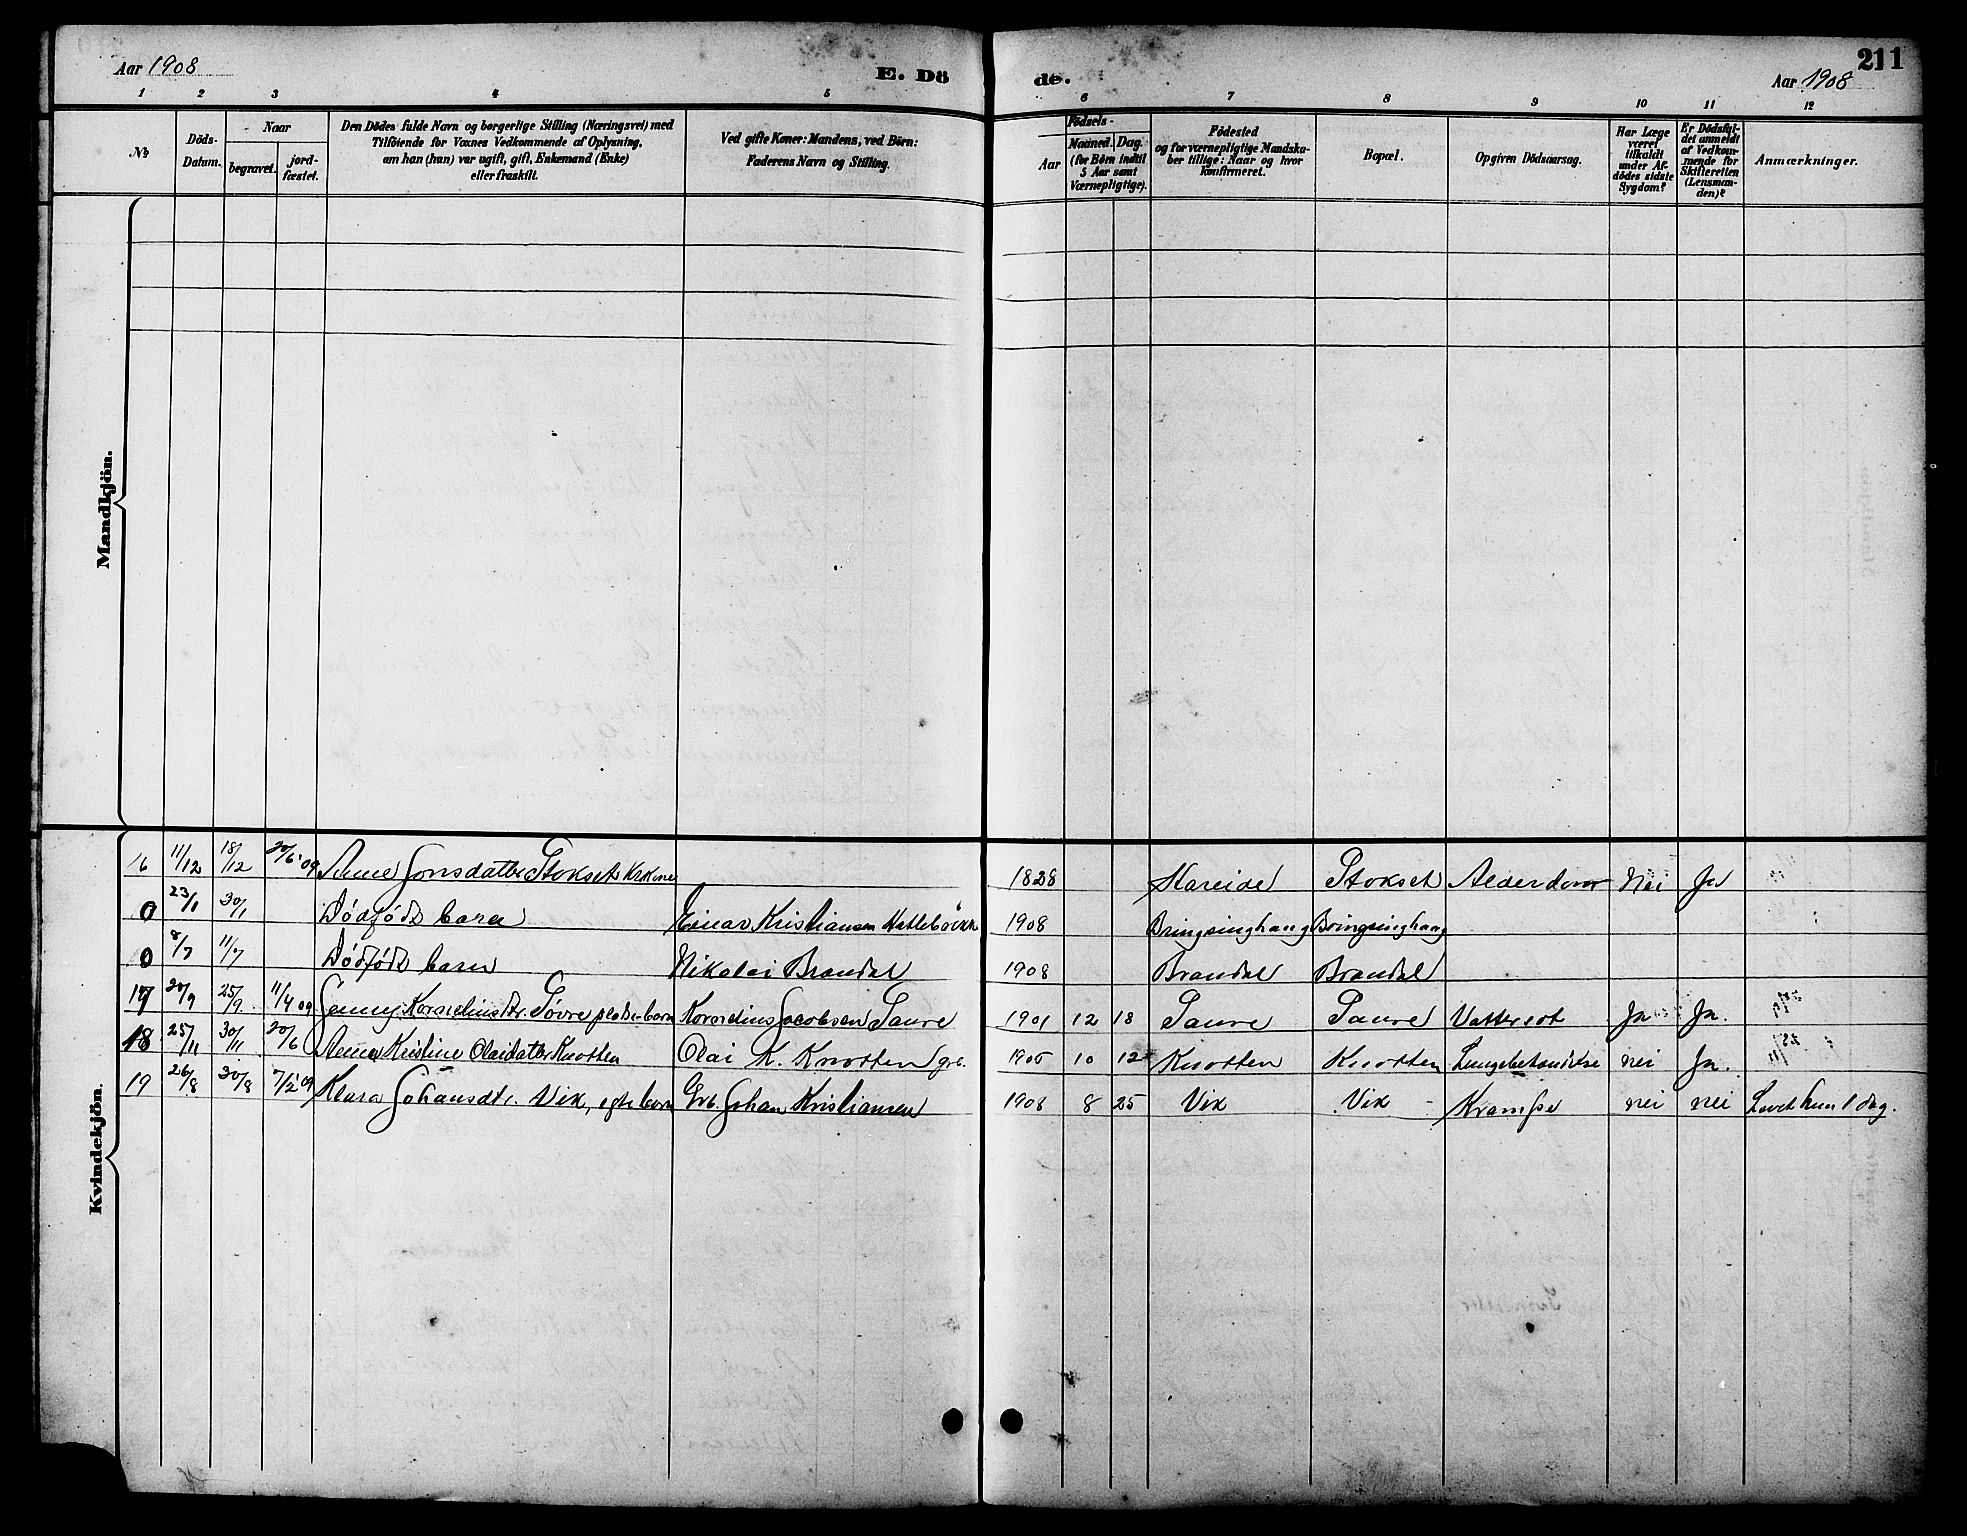 Aar 1908
E. Dö
de.
Aar 1908
211
1 2 3 4 5 6 7 8 9 10 11 12
№
Döds-
Datum.
Naar
begravet.
jord-
fæstet.
Den Dödes fulde Navn og borgerlige Stilling (Næringsvei) med
Tilföiende for Voxnes Vedkommende af Oplysning,
om han (hun) var ugift, gift, Enkemand (Enke)
eller fraskilt.
Ved gifte Koner: Mandens, ved Börn:
Faderens Navn og Stilling.
Födsels-
Aar
Maaned. Dag.
(for Börn indtil
5 Aar samt
Værnepligtige).
Födested
og for værnepligtige Mandska-
ber tillige: Naar og hvor
konfirmeret.
Bopæl.
Opgiven Dödsaarsag.
Har Læge
været
tilkaldt
under Af-
dödes sidste
Sygdom?
Er Dödsfal-
det anmeldt
af Vedkom-
mende for
Skifteretten
(Lensman-
den)?
Anmærkninger.
Mandkjön.
Kvindekjön.
16 11/12 18/12 20/6 09 Anne Jonsdatter Stokset 1828 Hareide Stokset Alderdom Nei Ja
0 23/1 30/1 Dödfödt barn Einar Kristiansen 1908 Bringsinghaug Bringsinghaug
0 8/7 11/7 Dödfödt barn Nikolai Brandal 1908 Brandal Brandal
17 20/9 25/9 11/4 09 Jenny Korneliusdtr. Kornelius Jacobsen Saure 1901 12 18 Saure Saure Vattersot Ja Ja.
18 25/11 30/11 20/6 Anna Kristine Olaidatter Knotten Olai K. Knotten grb. 1905 10 12 Knotten Knotten Lungebetændelse nei Ja.
19 26/8 30/8 7/2 09 Klara Johansdtr. Vik, egte barn Grb. Johan Kristiansen 1908 8 25 Vik Vik Krampe nei nei Levet kun 1 dag.